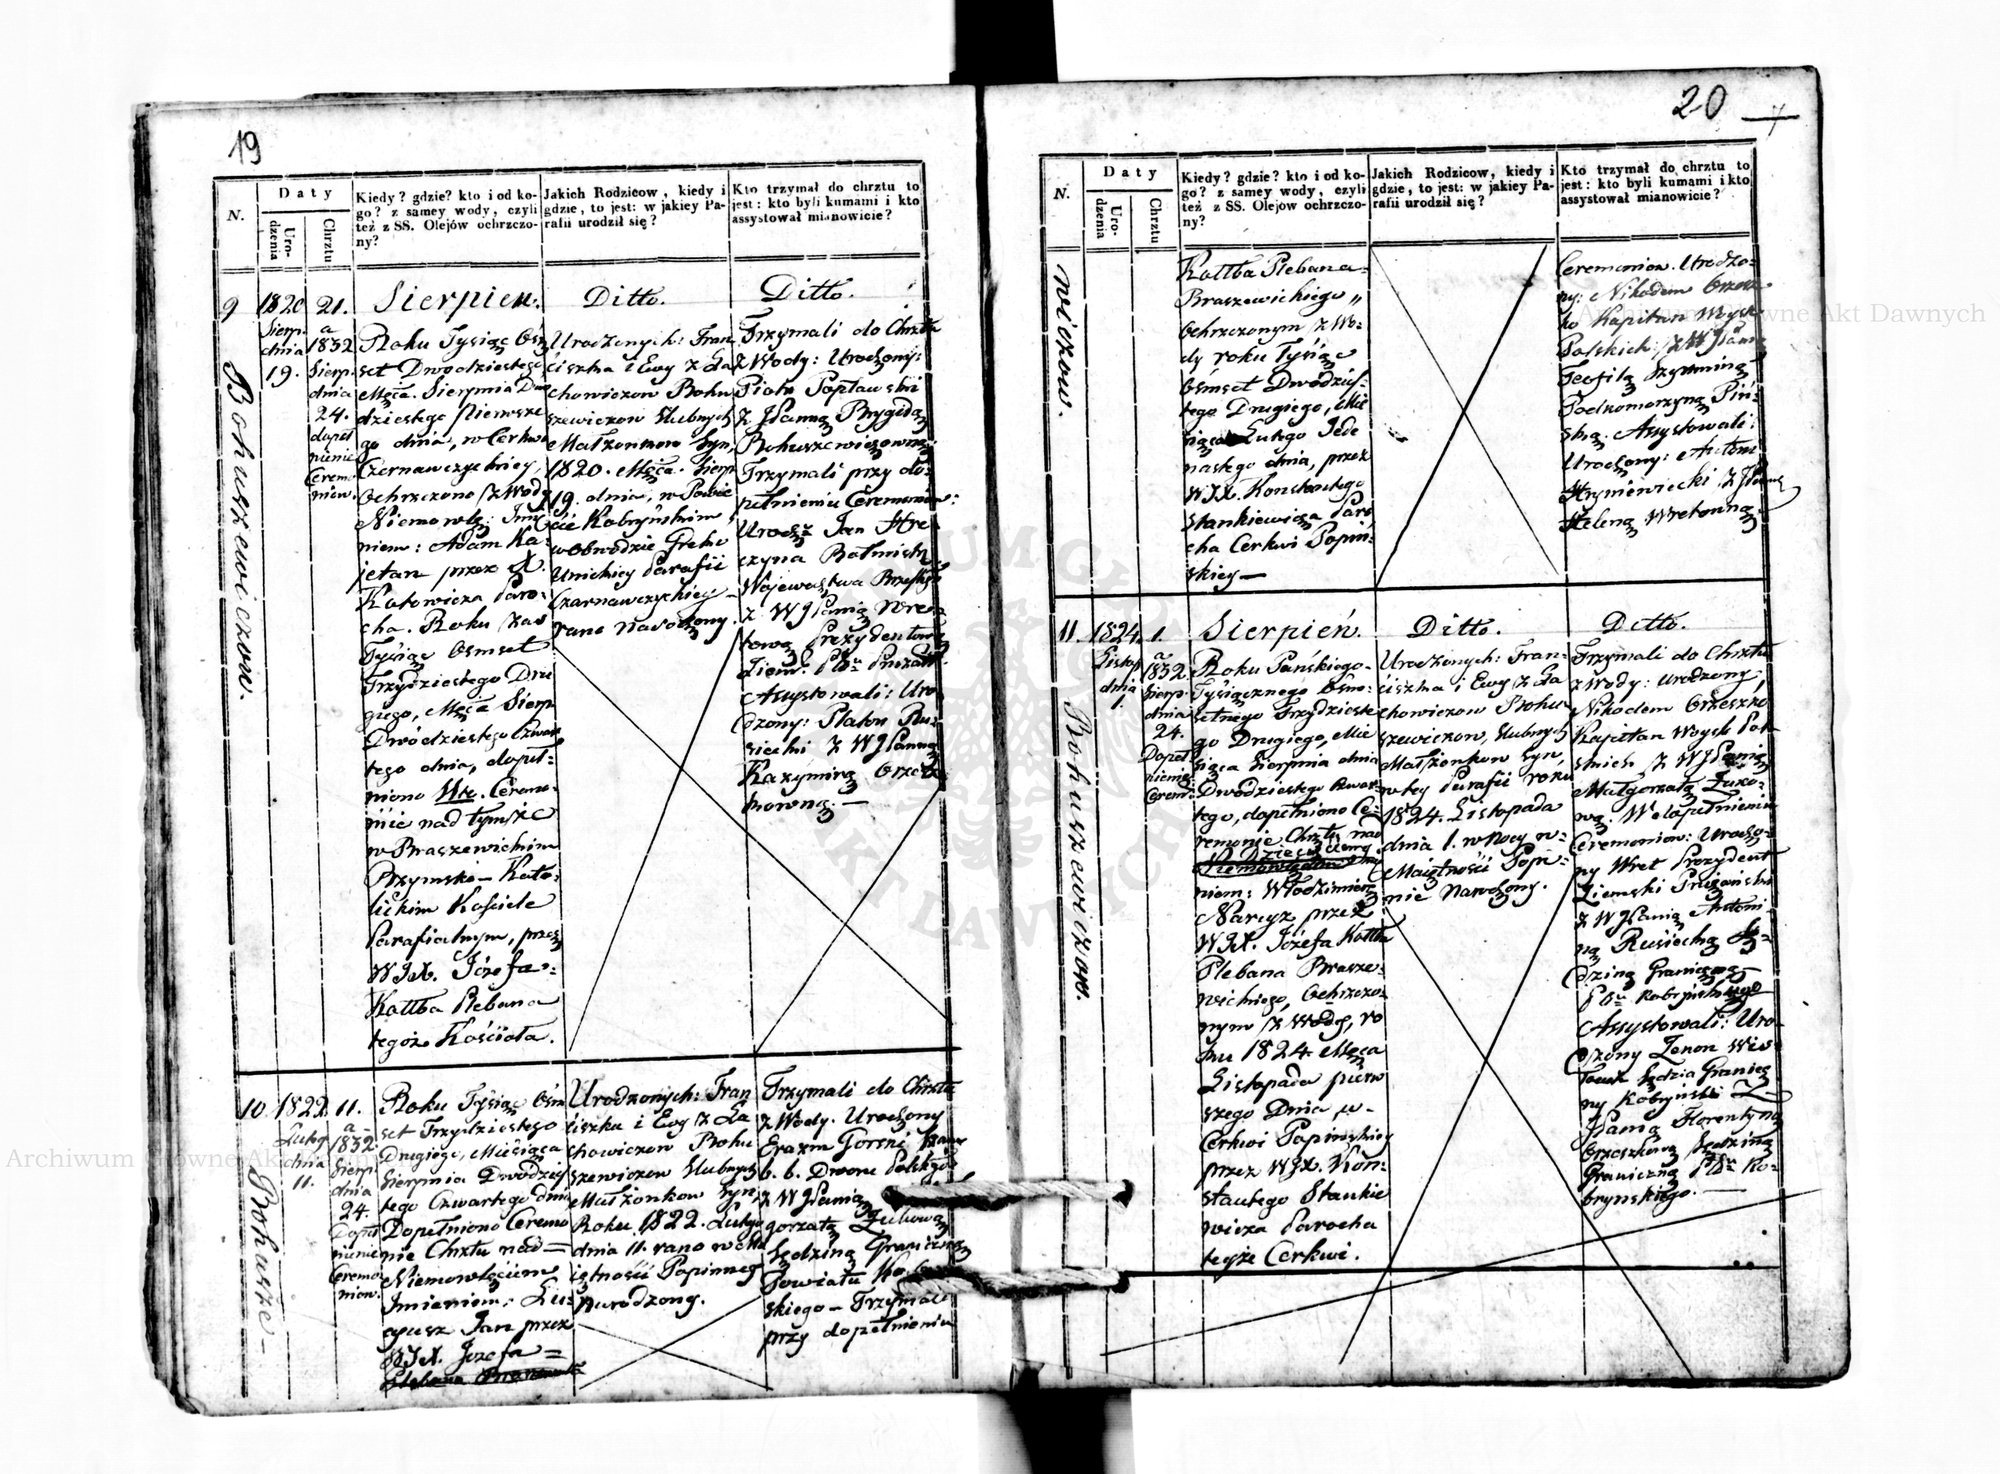 19
N.
Daty
Urodzenia
Chrztu
Kiedy? gdzie? kto i od ko-
go? z samey wody, czyli
też z SS. Olejów ochrzczo-
ny?
Jakich Rodzicow, kiedy i
gdzie, to jest: w jakiey Pa-
rafii urodził się?
Kto trzymał do chrztu to
jest: kto byli kumami i kto
assystował mianowicie?
9
Bohuszewiczow.
1820
Sierp.
dnia
19.
21.
a
1832
Sierp.
dnia
24.
dopeł
nienie
Cerem
niow.
Sierpień.
Roku Tysiąc Ośm
set Dwódziestego
Męca. Sierpnia Dwu
dziestego Pierwsze
go dnia, w Cerkwi
Czernawczyckiey,
Ochrzczono z Wody
Niemowlę Imie
niem: Adam Ka-
jetan przez X.
Kotowicza Paro-
cha. Roku zaś
Tysiąc Ośmset
Trzydziestego Dru
giego, Męca Sierp
Dwódziestego Czwar
tego dnia, dopeł-
niono Ceremo-
nie nad tymże
w Braszewickim
Rzymsko-Kato-
lickim Kościele
Parafialnym, przez
WJX. Józefa
Kottba Plebana
tegoż Kościoła.
Ditto.
Urodzonych: Fran
ciszka i Ewy z Ła
chowiczow Bohu
szewiczow Slubnych
Małżonkow Syn,
1820. Męca. Sierp
19. dnia, w Powie
cie Kobryńskim,
w Obwodzie Greko
Unickiey Parafii
Czarnawczyckiey
rano Narodzony.
Ditto.
Trzymali do Chrztu
z Wody: Urodzony:
Piotr Popławski
z JPanną Brygidą
Bohuszewiczowną:
Trzymali przy do-
pełnieniu Ceremoniow:
Urodz. Jan Hre
czyna Rotmistrz
Wojewodztwa Brzeskgo
z WJPanią Wret
tową Prezydentową
Ziem. Pttu Pruzań.
Assystowali: Uro
dzony: Platon Ru-
siecki z WJPanną
Kazymirą Orzesz
kowną. —
10.
Bohusze-
1822
Lutego
dnia
11.
11.
a
1832
Sierp.
dnia
24.
Dopeł
nienie
Ceremo
niow.
Roku Tysiąc Ośm
set Trzydziestego
Drugiego, Miesiąca
Sierpnia Dwódzies
tego Czwartego dnia
Dopełniono Ceremo
nie Chrztu nad
Niemowlęciem
Imieniem: Łu-
cyusz Jan przez
WJX. Józefa
Urodzonych: Fran
ciszka i Ewy z Ła
chowiczow Bohu
szewiczow Slubnych
Małżonkow Syn,
Roku 1822. Lutego
dnia 11. rano w Ma
iętności Popinney
narodzony.
Trzymali do Chrztu
z Wody. Urodzony
Erazm Gorski
b. b. Dworu Polskgo
z WJPanią
gorzatą Żukową
Sędziną Graniczną
Powiatu Kobryń
skiego — Trzymali
przy dopełnieniu
20
N.
Daty
Urodzenia
Chrztu
Kiedy? gdzie? kto i od ko-
go? z samey wody, czyli
też z SS. Olejow ochrzczo-
ny?
Jakich Rodzicow, kiedy i
gdzie, to jest: w jakiey Pa-
rafii urodził się?
Kto trzymał do chrztu to
jest: kto byli kumami i kto
assystował mianowicie?
wiczow.
Kottba Plebana
Braszewickiego
Ochrzczonym z Wo-
dy roku Tysiąc
Ośmset Dwódzies-
tego Drugiego, Mie
siąca Lutego Jede
nastego dnia, przez
WJX. Konstantego
Stankiewicza Paro
cha Cerkwi Popiń-
skiey —
Ceremoniow. Urodzo-
ny: Nikodem Orzesz-
ko Kapitan Woysk
Polskich z WJPanią
Teofilą Trzyminą
Podkomorzyną Piń-
ską. Assystowali:
Urodzony: Antoni
Hryniewiecki z JPanną
Heleną Wretowną.
11.
Bohuszewiczow.
1824.
Listop
dnia
1.
1.
a
1832.
Sierp.
dnia
24.
Dopeł
nienie
Cerem.
Sierpień.
Roku Pańskiego
Tysiącznego Ośmo-
setnego Trzydzieste
go Drugiego, Mie
siąca Sierpnia dnia
Dwódziestego Czwar
tego, dopełniono Ce-
remonie Chrztu nad
Dziecięciem
niem: Włodzimierz
Narcyz przez
WJX. Józefa Kottba
Plebana Brasze-
wickiego, Ochrzczo-
nym z Wody, ro
ku 1824 Męca
Listopada pierw
szego Dnia w
Cerkwi Popińskiey
przez WJX. Kon-
stantego Stankie
wicza Parocha
teyże Cerkwi.
Ditto.
Urodzonych: Fran-
ciszka i Ewy z Ła
chowiczow Bohu
szewiczow, Slubnych
Małżonkow Syn,
w tey Parafii roku
1824. Listopada
dnia 1. w Nocy w
Maiętności Popi-
nie Narodzony.
Ditto.
Trzymali do Chrztu
z Wody: Urodzony,
Nikodem Orzeszko
Kapitan Woysk Pol-
skich z WJPanią
Małgorzatą Żuko-
wą. W dopełnieniu
Ceremoniow: Urodzo-
ny Wret Prezydent
Ziemski Prużański
z WJPanią Antoni-
ną Rusiecką Sę-
dziną Graniczną
Pttu Kobryńskiego
Assystowali: Uro-
dzony Zenon
Sędzia Granicz
ny Kobryński z
JPanią Florentyną
Orzeszkową Sędziną
Graniczną Pttu Ko-
bryńskiego. —
Archiwum Główne Akt Dawnych
Archiwum Główne Akt Dawnych
ARCHIWUM GŁÓWNE AKT DAWNYCH